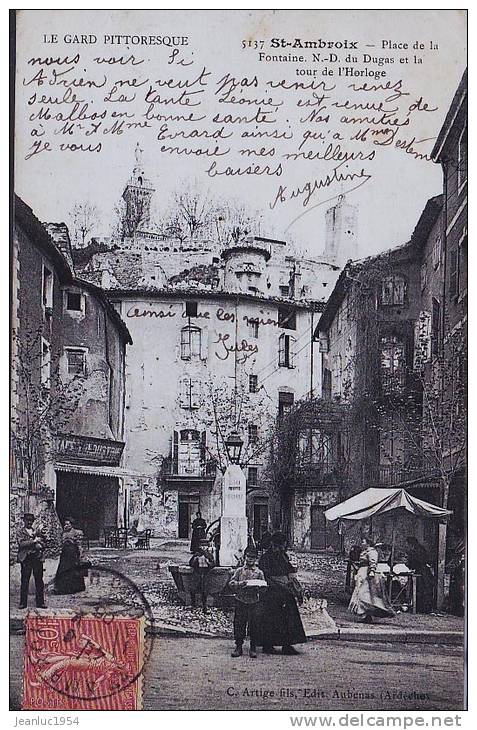 LE GARD PITTORESQUE
5137 St-Ambroix — Place de la
Fontaine. N.-D. du Dugas et la
tour de l'Horloge
nous voir. Si
Adrien ne veut pas venir venez
seule. La tante Léonie est venue de
Malbos en bonne santé. Nos amitiés
à Mr et Mme Evrard ainsi qu'à Mme
Je vous envoie mes meilleurs
baisers
Augustine
ainsi que les miens
Jules
C. Artige fils, Edit. Aubenas (Ardèche)
jeanluc1954